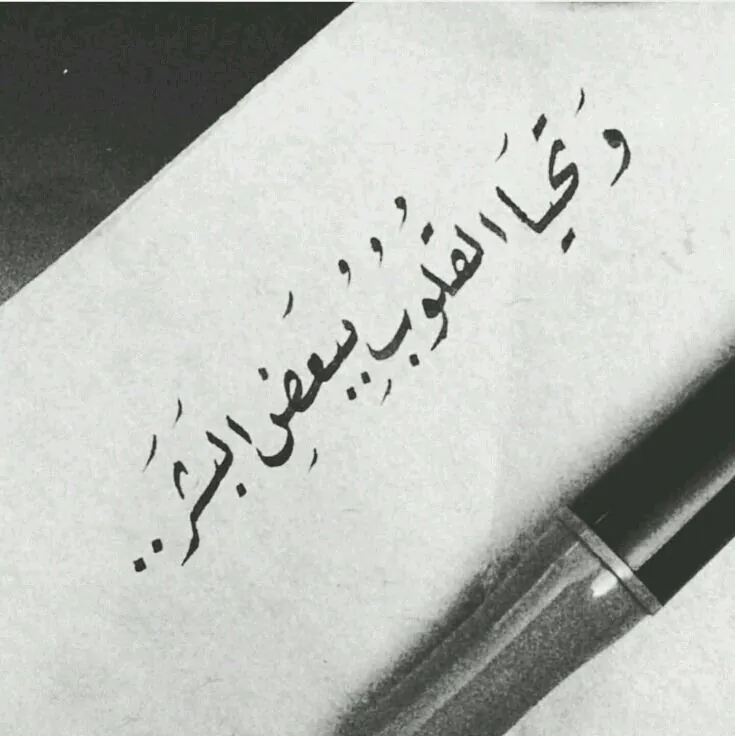 وَ تَحيَا القُلُوبُ بِبَعضِ البَشَرَ..